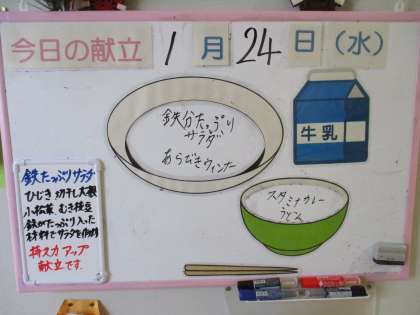 今日の献立 1月24日(水)
鉄分たっぷり
サラダ
あらびきウィンナー
牛乳
スタミナカレー
うどん
鉄たっぷりサラダ
ひじき 切干し大根
小松菜 むき枝豆
鉄がたっぷり入った
材料でサラダを作ります
持久力アップ
献立です。